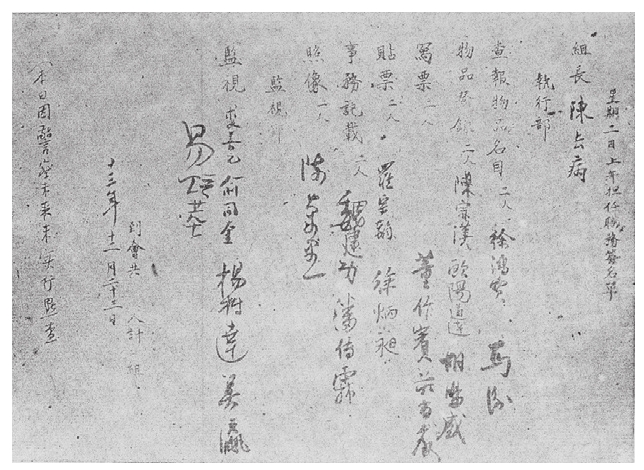 星期二日上午担任職務签名单
組長 陳去病
執行部
查報物品名目 二人 徐鴻寶 馬
物品登錄 二人 陳宗漢 歐陽道達
寫票 二人 董作賓 莊尚嚴
貼票 二人 羅宗翰 徐炳昶
事務記載 二人 魏建功 潘傳霖
照像 一人
監視部
監視 俞同奎 楊樹達 吳瀛
易培基
到會共 人計 組
十三年十二月二十三日
(本日因警察未来未实行點查)